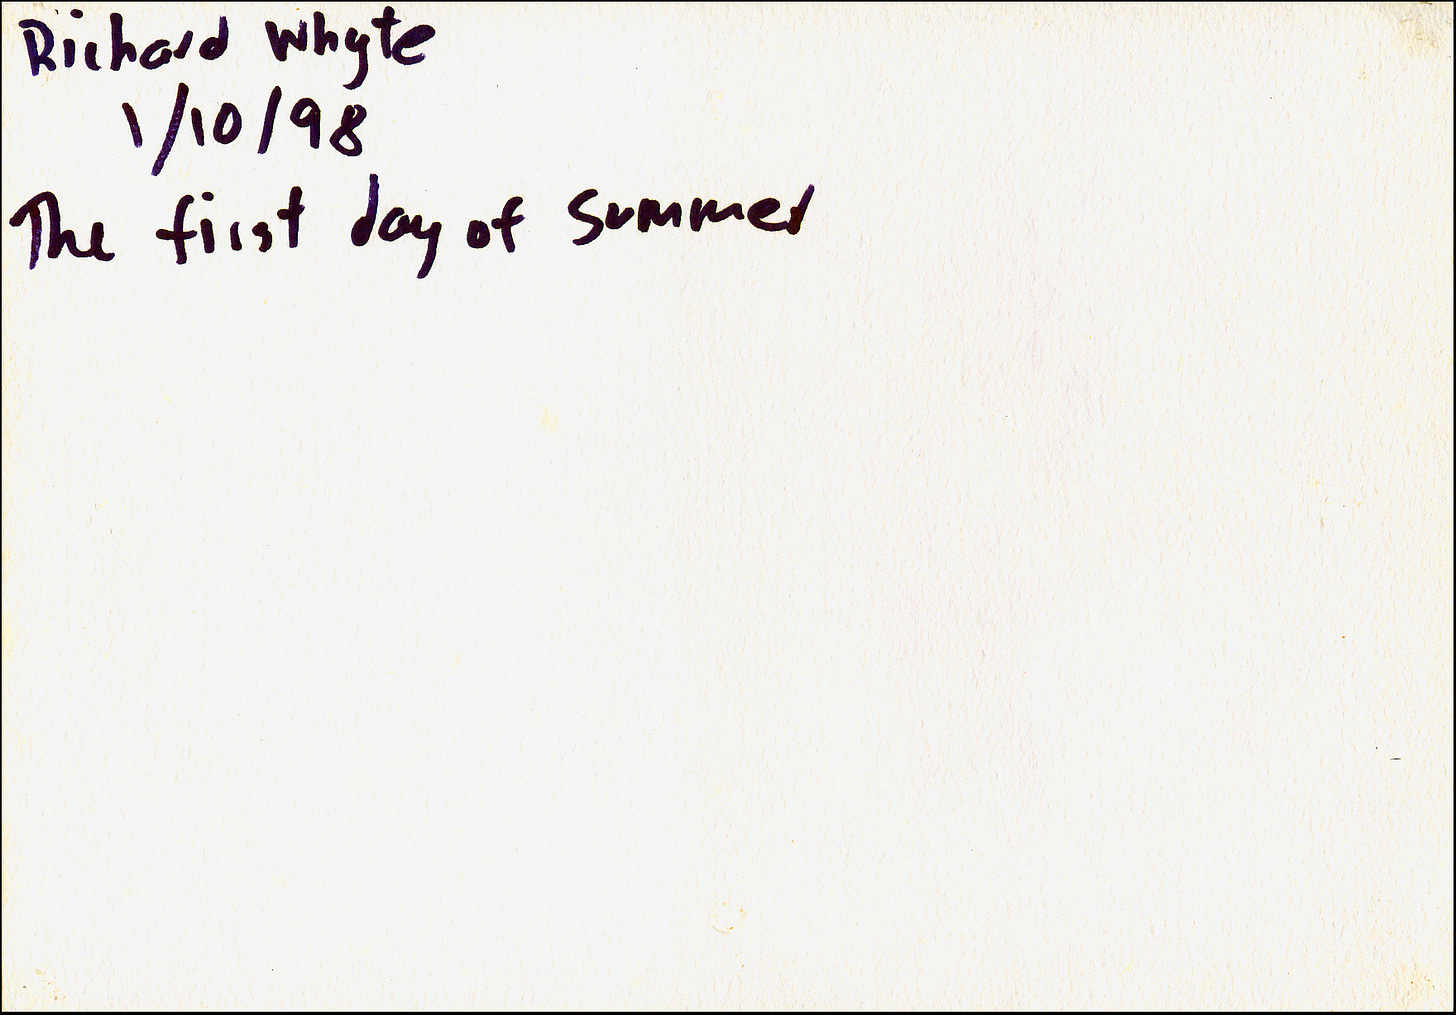 Richard Whyte
1/10/98
The first day of Summer